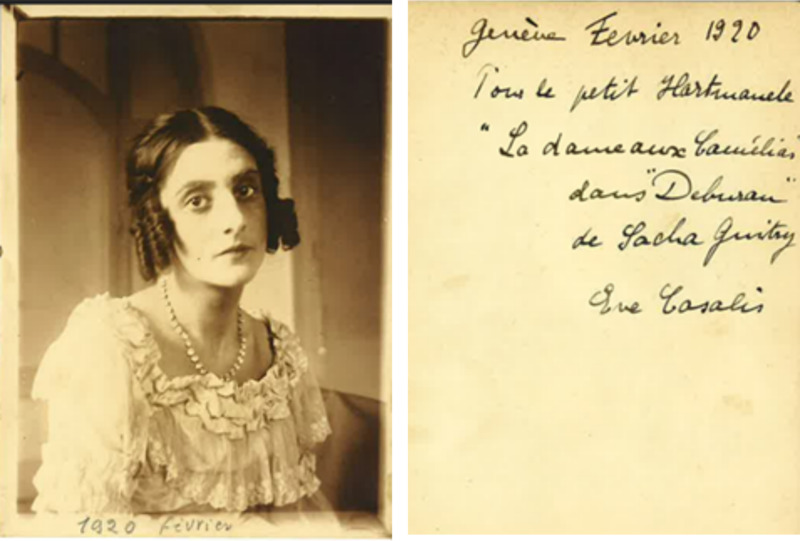 1920 février
Genève Fevrier 1920
Pour le petit Hartmanele
"La dame aux Camélias
dans "Deburau"
de Sacha Guitry
Eve Casalis